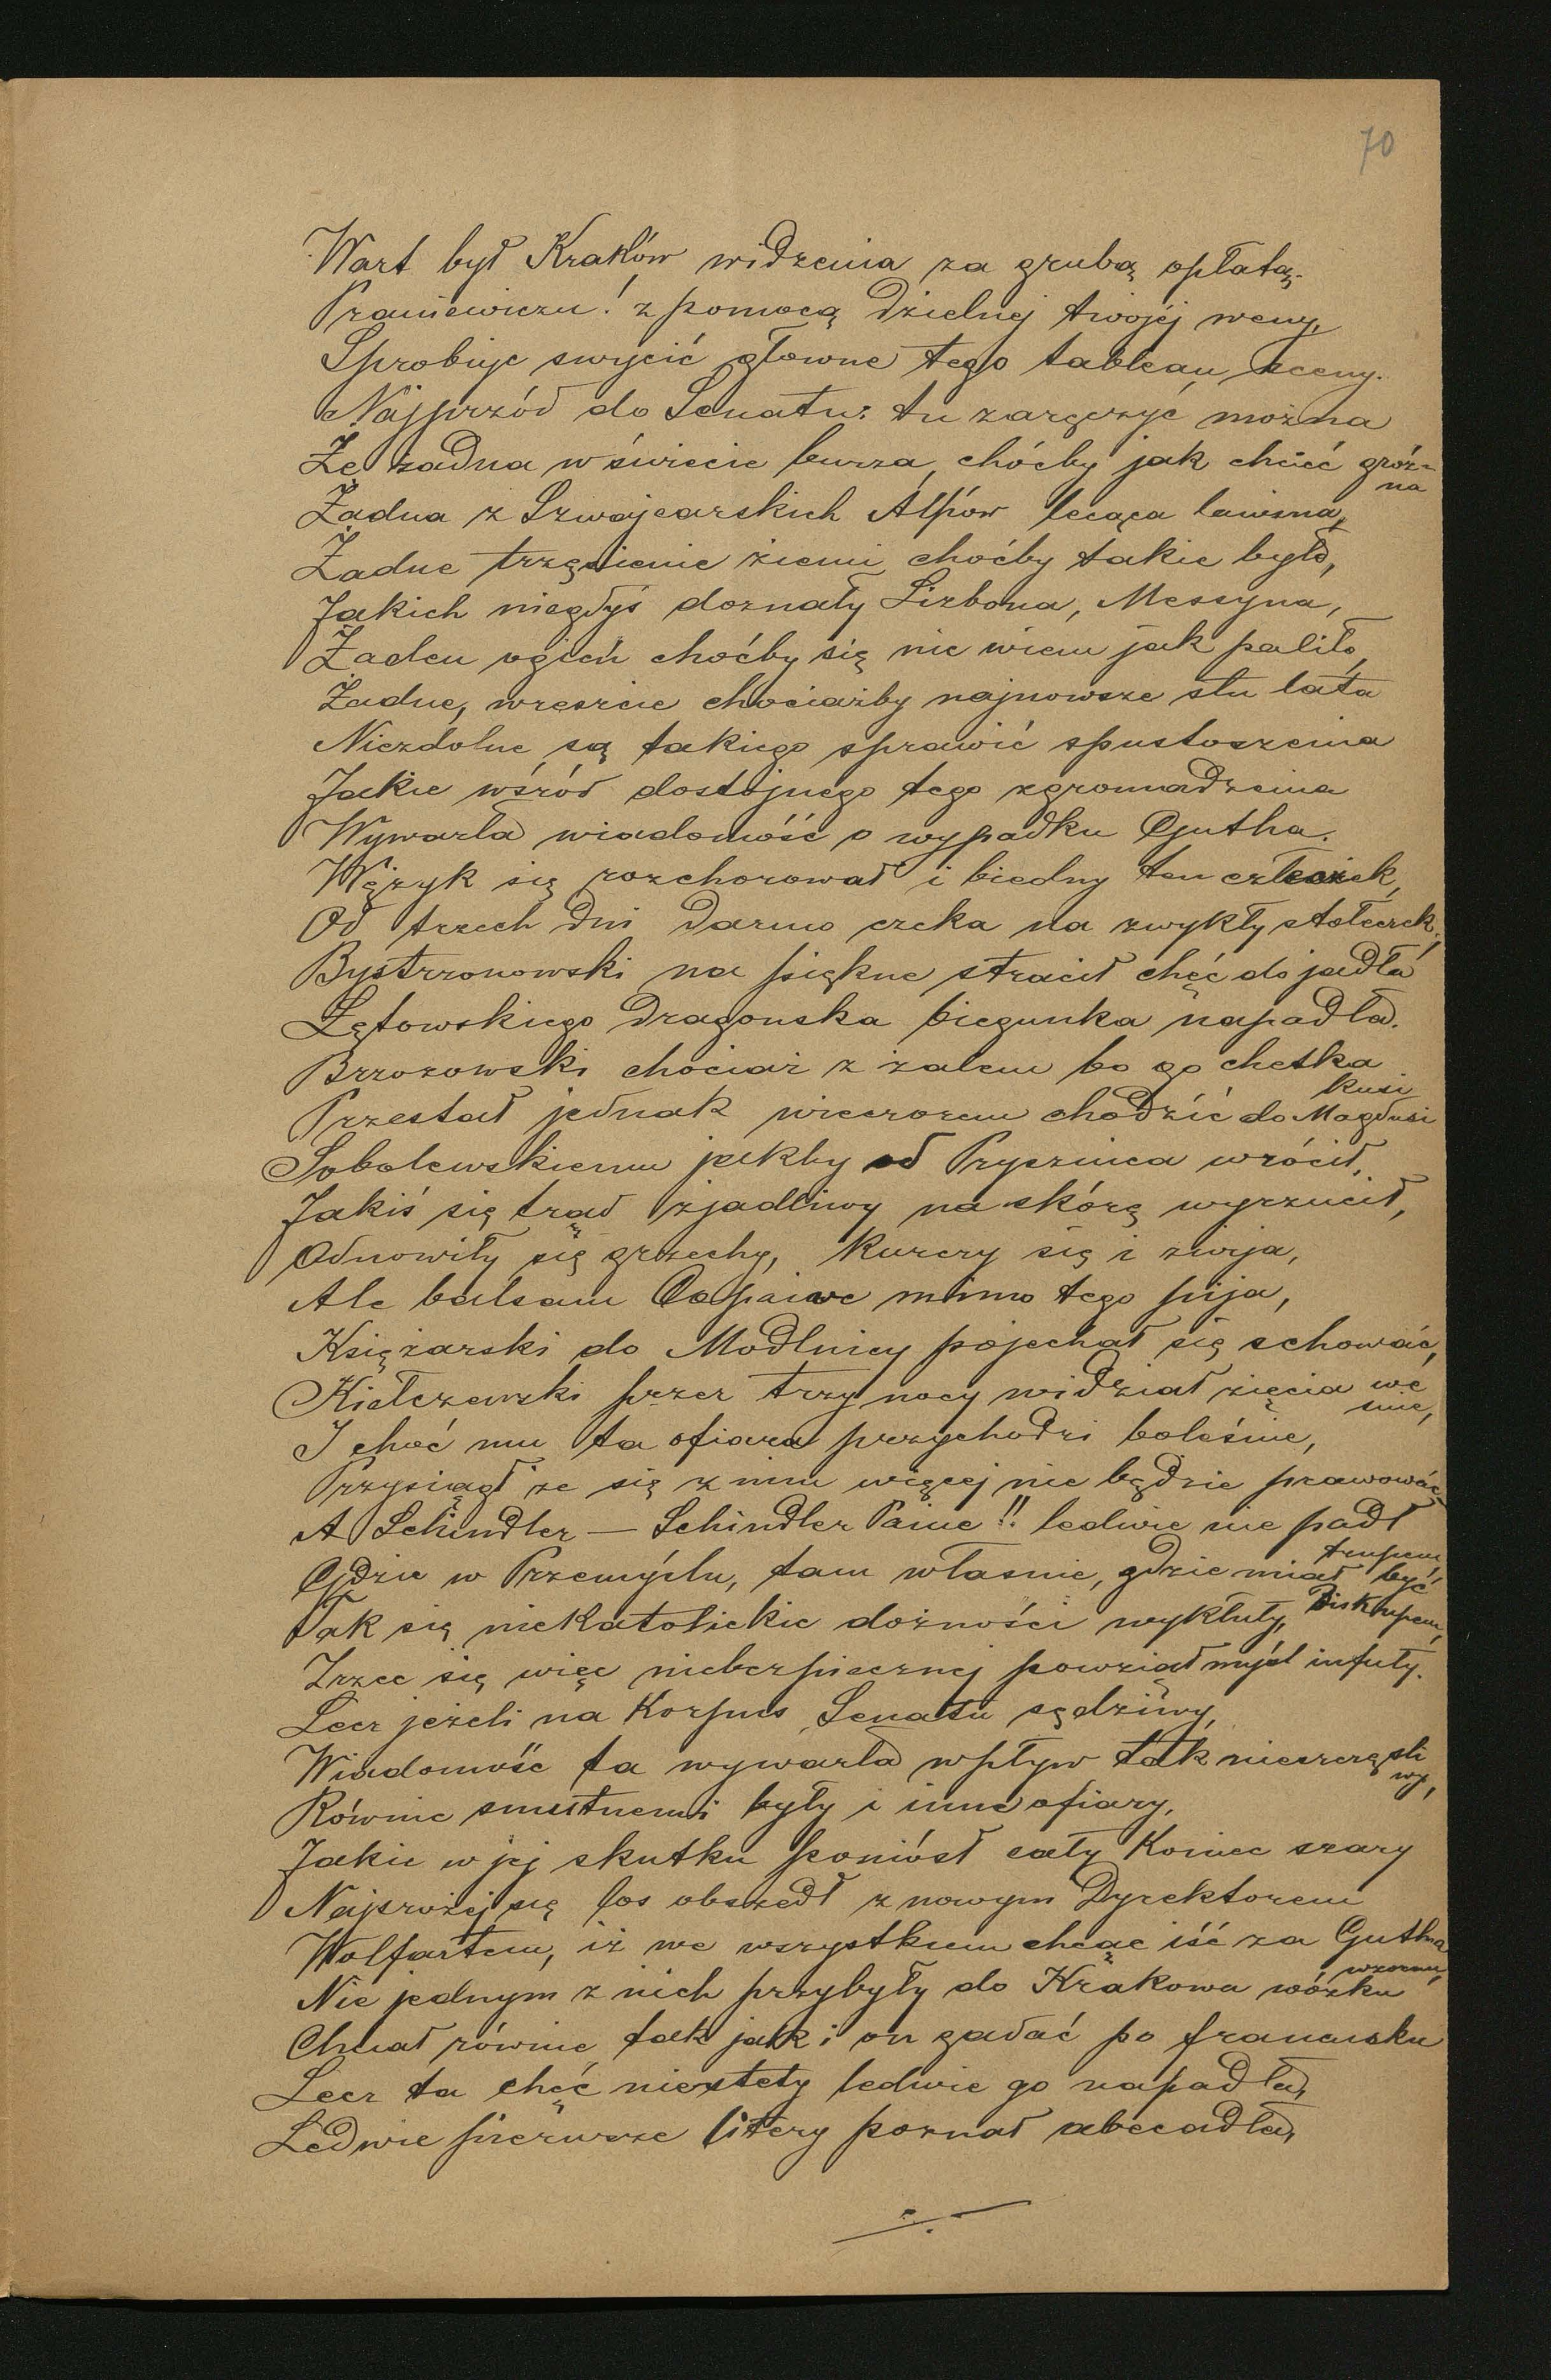 70
Wart był Kraków widzenia za grubą opłatą.
Praniewiczu! z pomocą dzielnej twojéj weny,
Sprobuję swycić głowne tego tableau sceny.
Najprzód do Senatu: tu zaręczyć można
Że żadna w świecie burza, choćby jak chcieć gróz-
na
Żadna z Szwajcarskich Alpów lecąca lawina,
Żadne trzęsienie ziemi choćby takie było,
Jakich niegdyś doznały Lizbona, Messyna,
Żaden ogień choćby się nie wiem jak paliło,
Żadne, wreszcie chociażby najnowsze stu lata
Niezdolne są takiego sprawić spustoszenia
Jakie wśród dostojnego tego zgromadzenia
Wywarła wiadomość o wypadku Gutha.
Wężyk się rozchorował i biedny ten człeczek,
Od trzech dni darmo czeka na zwykły stołeczek,
Bystrzonowski na piękne stracił chęć do jadła
Łętowskiego dragonska biegunka napadła.
Brzozowski chociaż z żalem bo go chetka
kusi
Przestał jednak wieczorem chodzić do Magdusi
Sobolewskiemu jakby od Pryszinca wrócił,
Jakiś się trąd zjadliwy na skórę wyrzucił,
Odnowiły się grzechy, kurczy się i zwija,
Ale balsam Copaiwe mimo tego pija,
Księżarski do Modlnicy pojechał się schować,
Kiełczewski przez trzy nocy widział zięcia we
śnie,
I choć mu ta ofiara przychodzi boleśnie,
Przysiągł że się z nim więcej nie będzie prawować,
A Schindler — Schindler Panie!! ledwie nie padł
trupem,
Gdzie w Przemyślu, tam własnie, gdzie miał być
Biskupem,
Tak się niekatolickie dożności wykłuły,
Zrzec się więc niebezpiecznej powziął myśl infuły.
Lecz jeżeli na Korpus Senatu sędziwy,
Wiadomość ta wywarła wpływ tak nieszczęśli
wy,
Równie smutnemi były i inne ofiary,
Jakie w jej skutku poniósł cały koniec szary
Najsrożej się los obszedł z nowym Dyrektorem
Wolfartem, iż we wszystkiem chcąc iść za Gutha
wzorem,
Nie jednym z nich przybyły do Krakowa wózku
Chciał równie tak jak i on gadać po francusku
Lecz ta chęć niestety ledwie go napadła,
Ledwie pierwsze litery poznał abecadła,